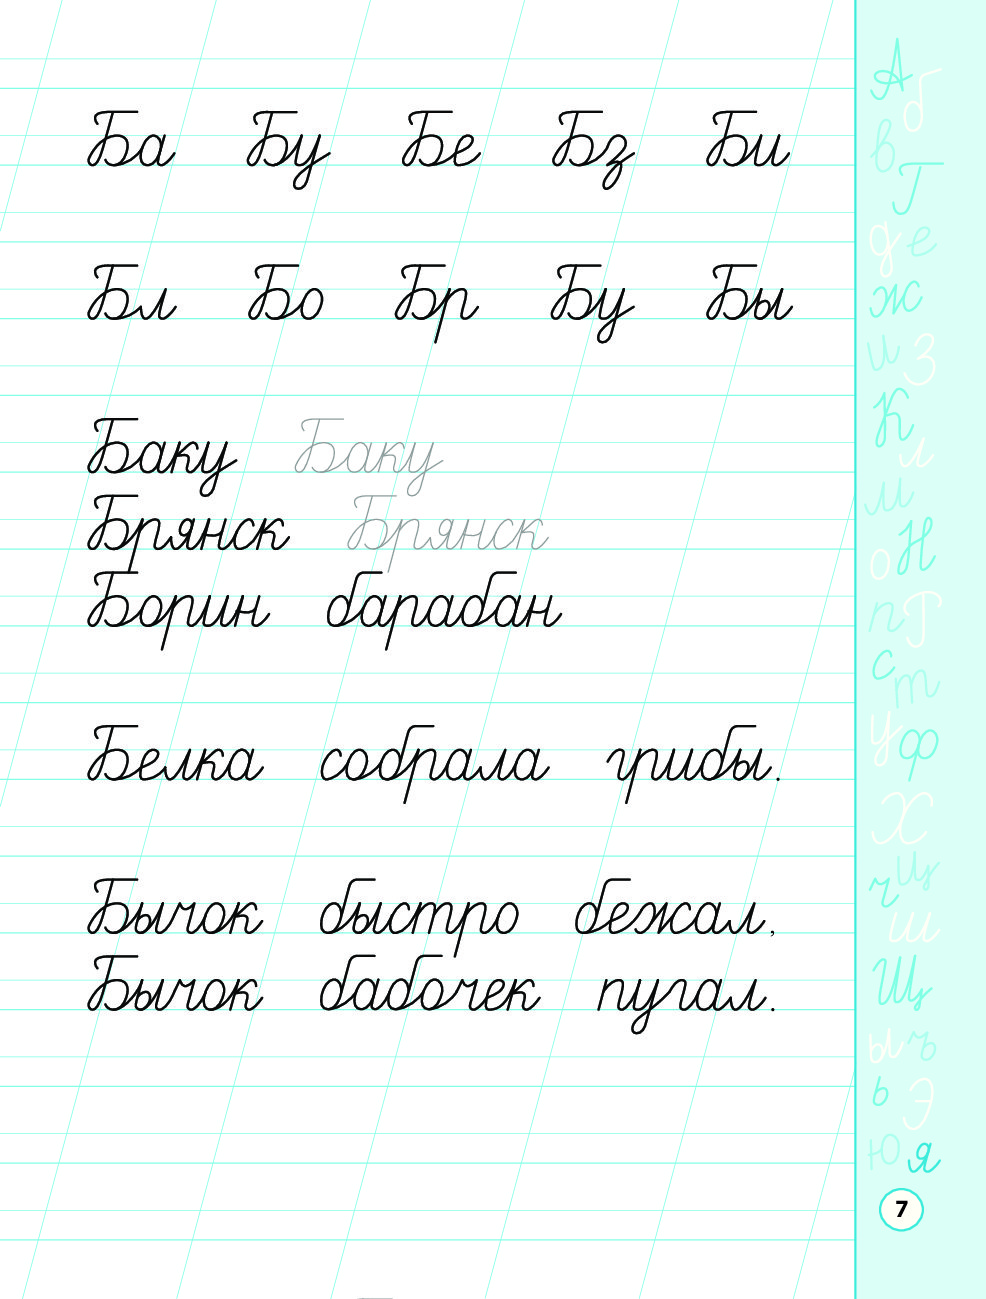 Ба Бу Бе Бз Би
Бл Бо Бр Бу Бы
Баку Баку
Брянск Брянск
Борин барабан
Белка собрала грибы.
Бычок быстро бежал,
Бычок бабочек пугал.
А б
в Г
д е
ж
и З
К л
м Н
о
п Г
с т
у ф
Х
ц ч
ш
Щ
ы ъ
ь Э
Ю я
7